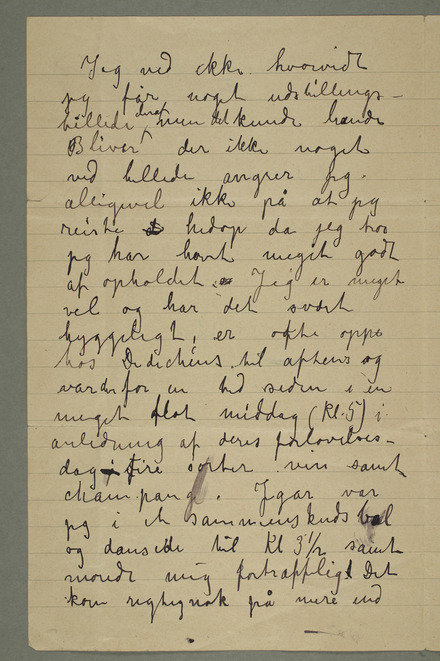 Jeg ved ikke hvorvidt
jeg får noget udstillings-
billede deraf, men det kunde hænde
Bliver der ikke noget
ved billede angrer jeg
alligevel ikke på at jeg
reiste hidop da jeg tror
jeg har havt meget godt
af opholdet. Jeg er meget
vel og har det svært
hyggeligt, er ofte oppe
hos Dedichens til aftens og
var der for en tid siden i en
meget flot middag (Kl. 5) i
anledning af deres forlovelses-
dag fire sorter vin samt
champang. Igår var
jeg i et sammenskudsbal
og dansede til Kl 3 1/2 samt
morede mig fortræffligt Det
kom rigtignok på mere end